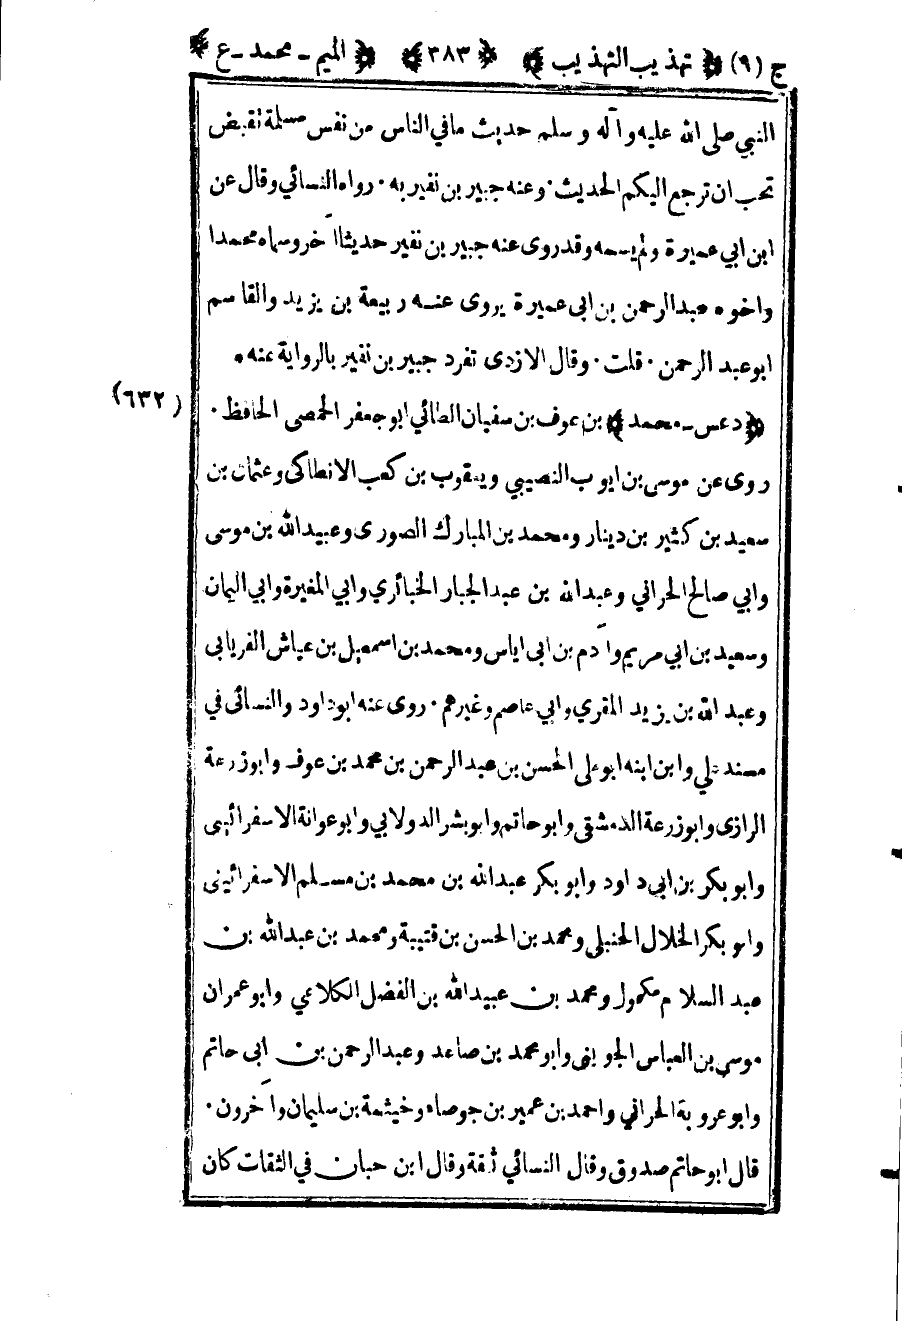 ج (٩) ﴿ تهذيب التهذيب ﴾ ﴿ ٣٨٣ ﴾ ﴿ الميم ـ محمد ـ ع ﴾
النبي صلى الله عليه وآله وسلم حديث ما في الناس من نفس مسلمة تقبض
تحب ان ترجع اليكم الحديث · وعنه جبير بن نفير به · رواه النسائي وقال عن
ابن ابي عميرة ولم يسمه وقد روى عنه جبير بن نفير حديثا آخر وسماه محمدا
واخوه عبدالرحمن بن ابى عميرة يروى عنه ربيعة بن يزيد والقاسم
ابو عبد الرحمن · قلت · وقال الازدى تفرد جبير بن نفير بالرواية عنه •
(٦٣٢)
﴿ د عس ـ محمد ﴾ بن عوف بن سفيان الطائي ابو جعفر الحمصى الحافظ ·
روى عن موسى بن ايوب النصيبي ويعقوب بن كعب الانطاكى وعثمان بن
سعيد بن كثير بن دينار ومحمد بن المبارك الصورى وعبيدالله بن موسى
وابي صالح الحراني وعبدالله بن عبدالجبار الخبائري وابي المغيرة وابي اليمان
وسعيد بن ابي مريم وآدم بن ابى اياس ومحمد بن اسمعيل بن عياش الفريابى
وعبد الله بن يزيد المقري وابي عاصم وغيرهم · روى عنه ابوداود والنسائى في
مسند علي وابن ابنه ابو على الحسن بن عبدالرحمن بن محمد بن عوف وابوزرعة
الرازى وابوزرعة الدمشقى وابوحاتم وابوبشر الدولابي وابوعوانة الاسفرائينى
وابوبكر بن ابي داود وابو بكر عبدالله بن محمد بن مسلم الاسفرائينى
وابو بكر الخلال الحنبلى ومحمد بن الحسن بن قتيبة ومحمد بن عبدالله بن
عبد السلام مكحول ومحمد بن عبيدالله بن الفضل الكلاعي وابو عمران
موسى بن العباس الجوينى وابو محمد بن صاعد وعبدالرحمن بن ابى حاتم
وابوعروبة الحراني واحمد بن عمير بن جوصاء وخيثمة بن سليمان وآخرون ·
قال ابوحاتم صدوق وقال النسائي ثقة وقال ابن حبان في الثقات كان